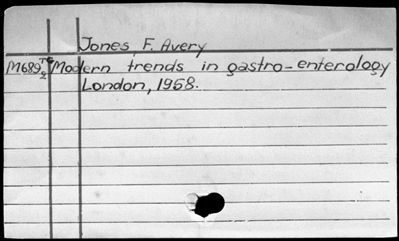 Jones, F. Avery
M689 Modern trends in gastro-enterology
London, 1958.